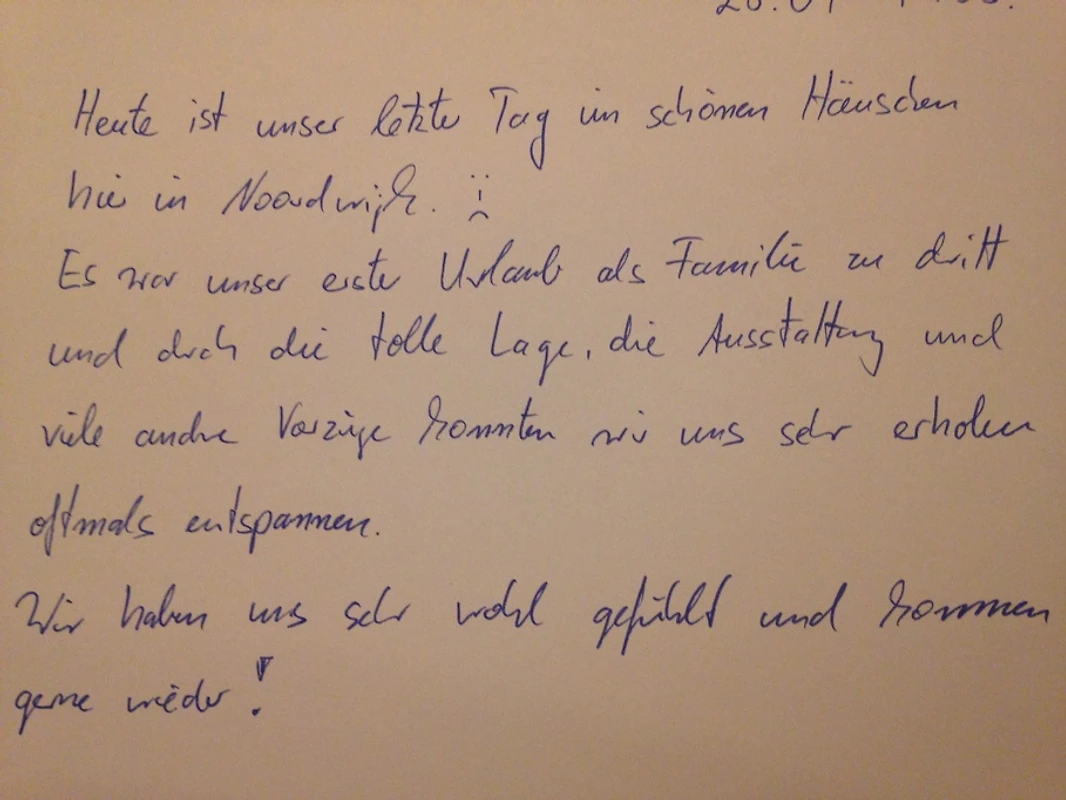 Heute ist unser letzte Tag im schönen Häuschen
hier in Noordwijk. :(
Es war unser erster Urlaub als Familie zu dritt
und durch die tolle Lage, die Ausstattung und
viele andre Vorzüge konnten wir uns sehr erholen
oftmals entspannen.
Wir haben uns sehr wohl gefühlt und kommen
gerne wieder!